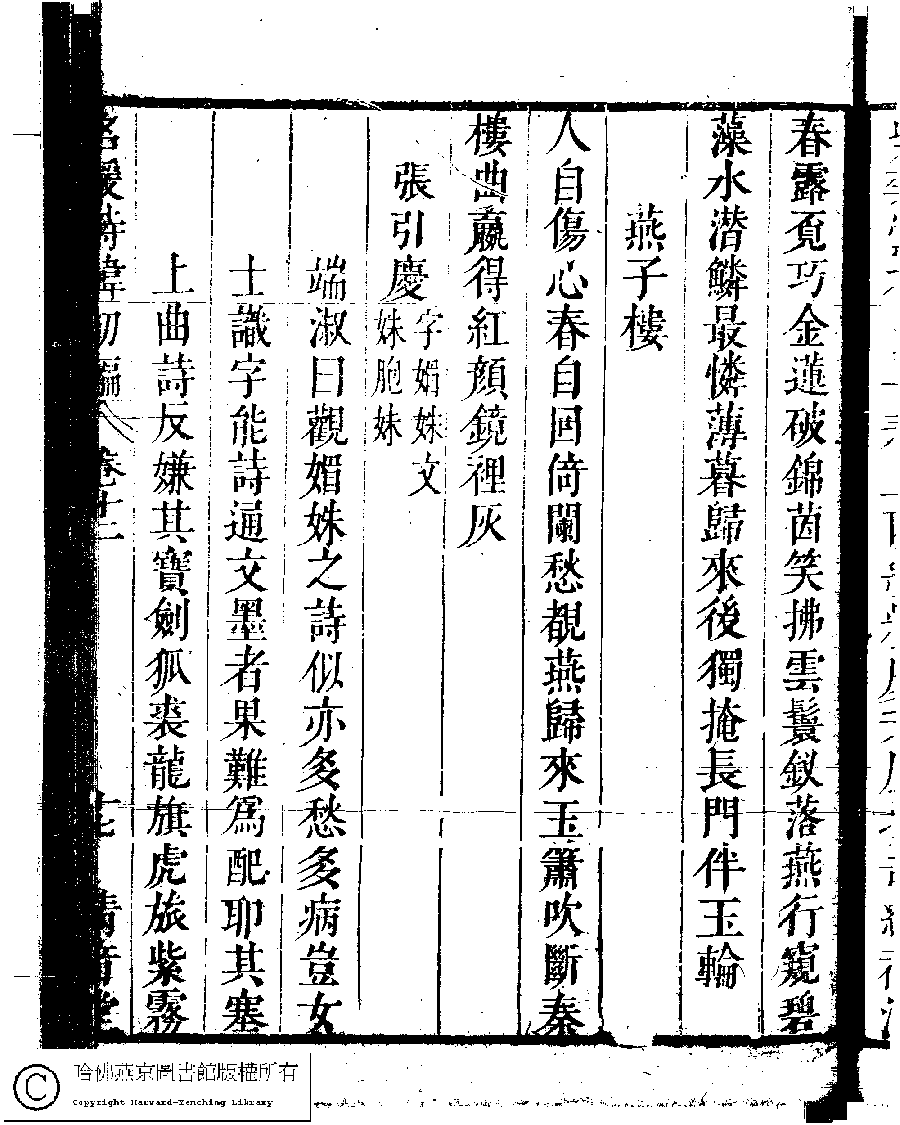 春露覔巧金蓮破錦茵笑拂雲鬟釵落燕行窺碧
藻水潜鱗最憐薄暮歸來後獨掩長門伴玉輪
燕子樓
人自傷心春自回倚闌愁覩燕歸來玉簫吹斷秦
樓曲贏得紅顏鏡裡灰
張引慶
字媚姝文
姝胞妹
端淑曰觀媚姝之詩似亦多愁多病豈女
士識字能詩通文墨者果難爲配耶其塞
上曲詩反嫌其寶劍狐裘龍旗虎旅紫霧
名媛詩緯初編
卷十二
十七
清音堂
哈佛燕京圖書館版權所有
Copyright Harvard-Yenching Library